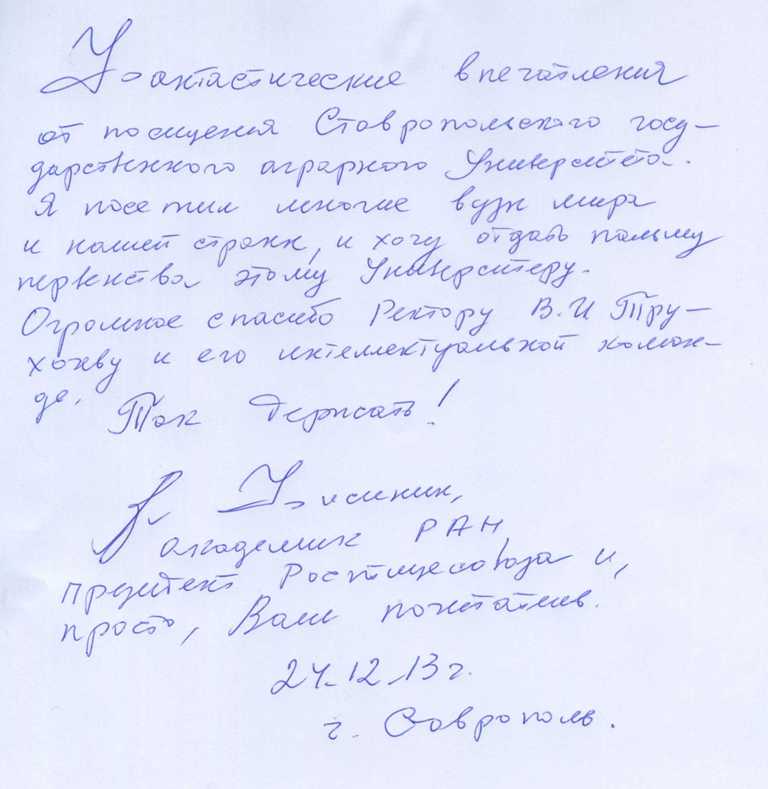 Фантастические впечатления
от посещения Ставропольского госу-
дарственного аграрного Университета.
Я посетил многие вузы мира
и нашей страны, и хочу отдать пальму
первенства этому Университеру.
Огромное спасибо Ректору В.И Тру-
хачеву и его интеллектуальной коман-
де.
Так держать!
Фисинин,
академик РАН,
президент Росптицесоюза и,
просто, Ваш почитатель.
24.12.13г.
г. Ставрополь.